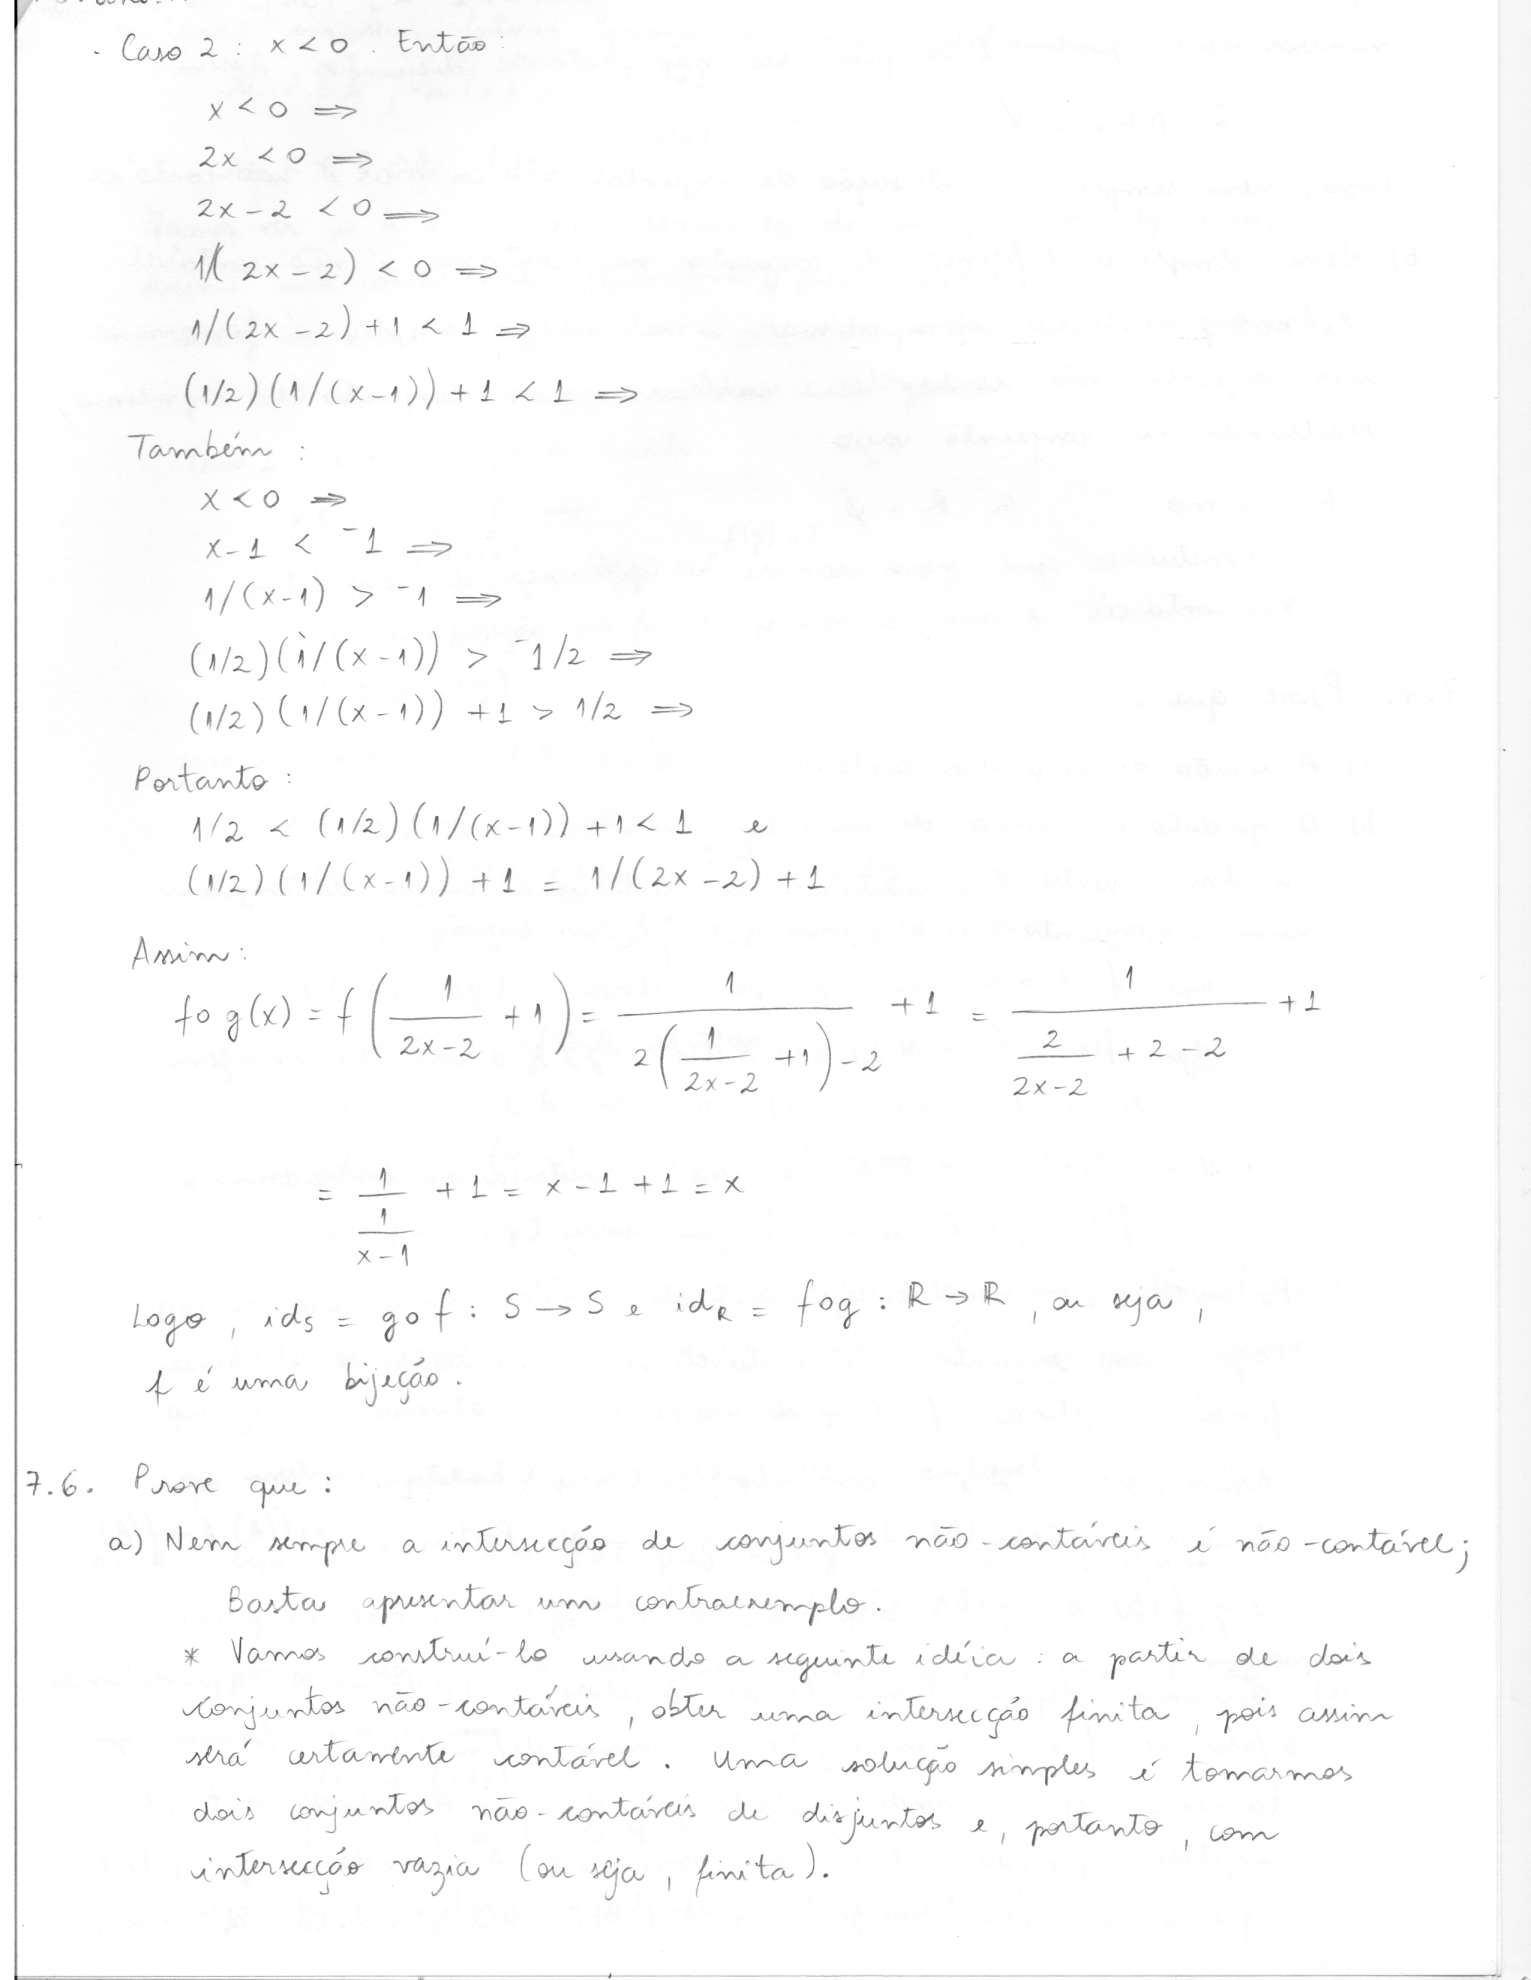 - Caso 2 : x < 0 . Então :
x < 0 ⟹
2x < 0 ⟹
2x - 2 < 0 ⟹
1/(2x - 2) < 0 ⟹
1/(2x - 2) + 1 < 1 ⟹
(1/2)(1/(x-1)) + 1 < 1 ⟹
Também :
x < 0 ⟹
x - 1 < ⁻1 ⟹
1/(x-1) > ⁻1 ⟹
(1/2)(1/(x-1)) > ⁻1/2 ⟹
(1/2)(1/(x-1)) + 1 > 1/2 ⟹
Portanto :
1/2 < (1/2)(1/(x-1)) + 1 < 1 e
(1/2)(1/(x-1)) + 1 = 1/(2x-2) + 1
Assim :
fog(x) = f(1/(2x-2) + 1) = 1/(2(1/(2x-2) + 1) - 2) + 1 = 1/(2/(2x-2) + 2 - 2) + 1
= 1/(1/(x-1)) + 1 = x - 1 + 1 = x
Logo, id_S = gof : S → S e id_R = fog : ℝ → ℝ, ou seja,
f é uma bijeção.
7.6. Prove que :
a) Nem sempre a intersecção de conjuntos não-contáveis é não-contável;
Basta apresentar um contraexemplo.
* Vamos construí-lo usando a seguinte idéia : a partir de dois
conjuntos não-contáveis, obter uma intersecção finita, pois assim
será certamente contável. Uma solução simples é tomarmos
dois conjuntos não-contáveis de disjuntos e, portanto, com
intersecção vazia (ou seja, finita).